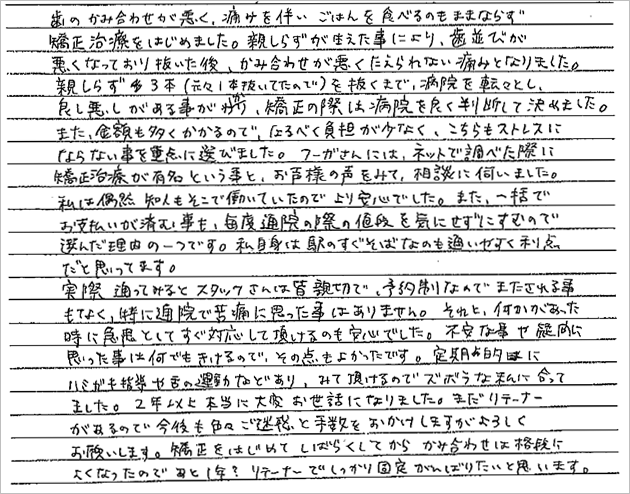 歯のかみ合わせが悪く、痛みを伴いごはんを食べるのもままならず
矯正治療をはじめました。親しらずが生えた事により、歯並びが
悪くなっており抜いた後、かみ合わせが悪くたえられない痛みとなりました。
親しらず3本(元々1本抜いてたので)を抜くまで、病院を転々とし、
良し悪しがある事が分かり、矯正の際は病院を良く判断して決めました。
また、金額も多くかかるので、なるべく負担が少なく、こちらもストレスに
ならない事を重点に選びました。フーガさんには、ネットで調べた際に
矯正治療が有名という事と、お客様の声をみて、相談に伺いました。
私は偶然知人もそこで働いていたのでより安心でした。また、一括で
お支払いが済む事も、毎度通院の際の値段を気にせずにすむので
選んだ理由の一つです。私自身は駅のすぐそばなのも通いやすく利点
だと思ってます。
実際通ってみるとスタッフさんは皆親切で、予約制なのでまたされる事
もなく、特に通院で苦痛に思った事はありません。それと、何かがあった
時に急患としてすぐ対応して頂けるのも安心でした。不安な事や疑問に
思った事は何でもきけるので、その点もよかったです。定期的に
ハミガキ指導や舌の運動などあり、みて頂けるのでズボラな私に合って
ました。2年以上本当に大変お世話になりました。まだリテーナー
があるので今後も色々ご迷惑と手数をおかけしますがよろしく
お願いします。矯正をはじめてしばらくしてからかみ合わせは格段に
よくなったのであと1年?リテーナーでしっかり固定がんばりたいと思います。